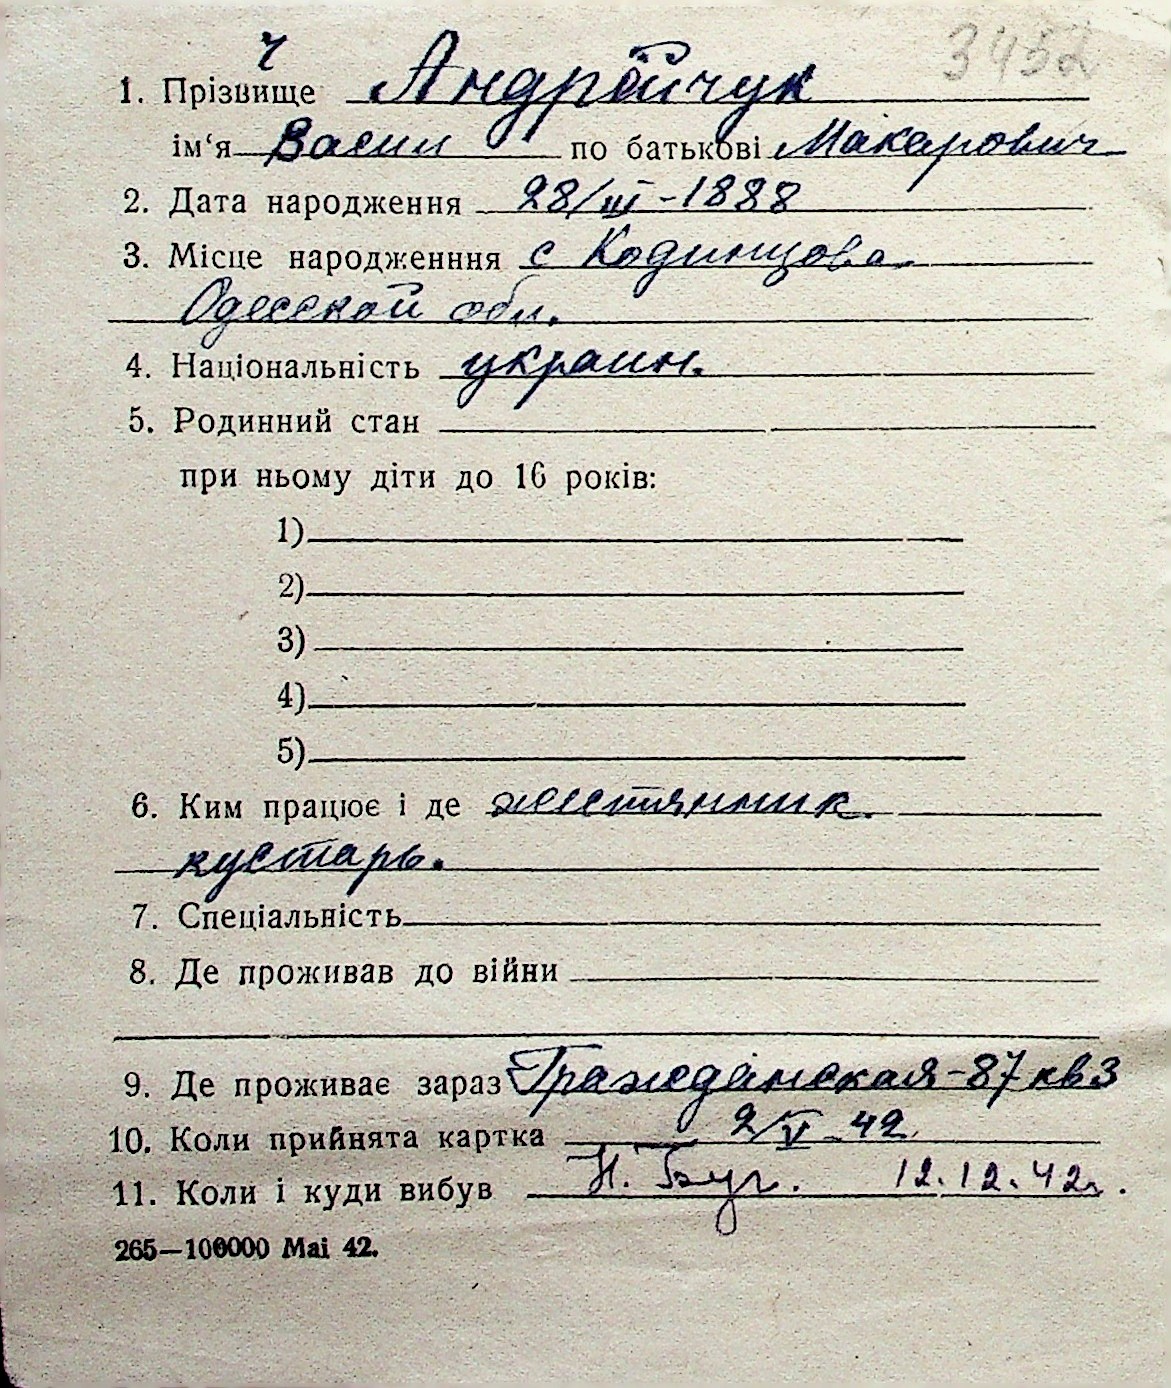 3452
ч
1. Прізвище Андрейчук
ім‘я Васил по батькові Макарович
2. Дата народження 28/III-1888
3. Місце народженння с Кодинцова
Одесской обл.
4. Національність украин.
5. Родинний стан
при ньому діти до 16 років:
1)
2)
3)
4)
5)
6. Ким працює і де жестянник.
кустарь.
7. Спеціальність
8. Де проживав до війни
9. Де проживає зараз Гражданская-87 кв 3
10. Коли прийнята картка 2/V-42.
11. Коли і куди вибув Н. Буг. 12.12.42г.
265—100000 Mai 42.